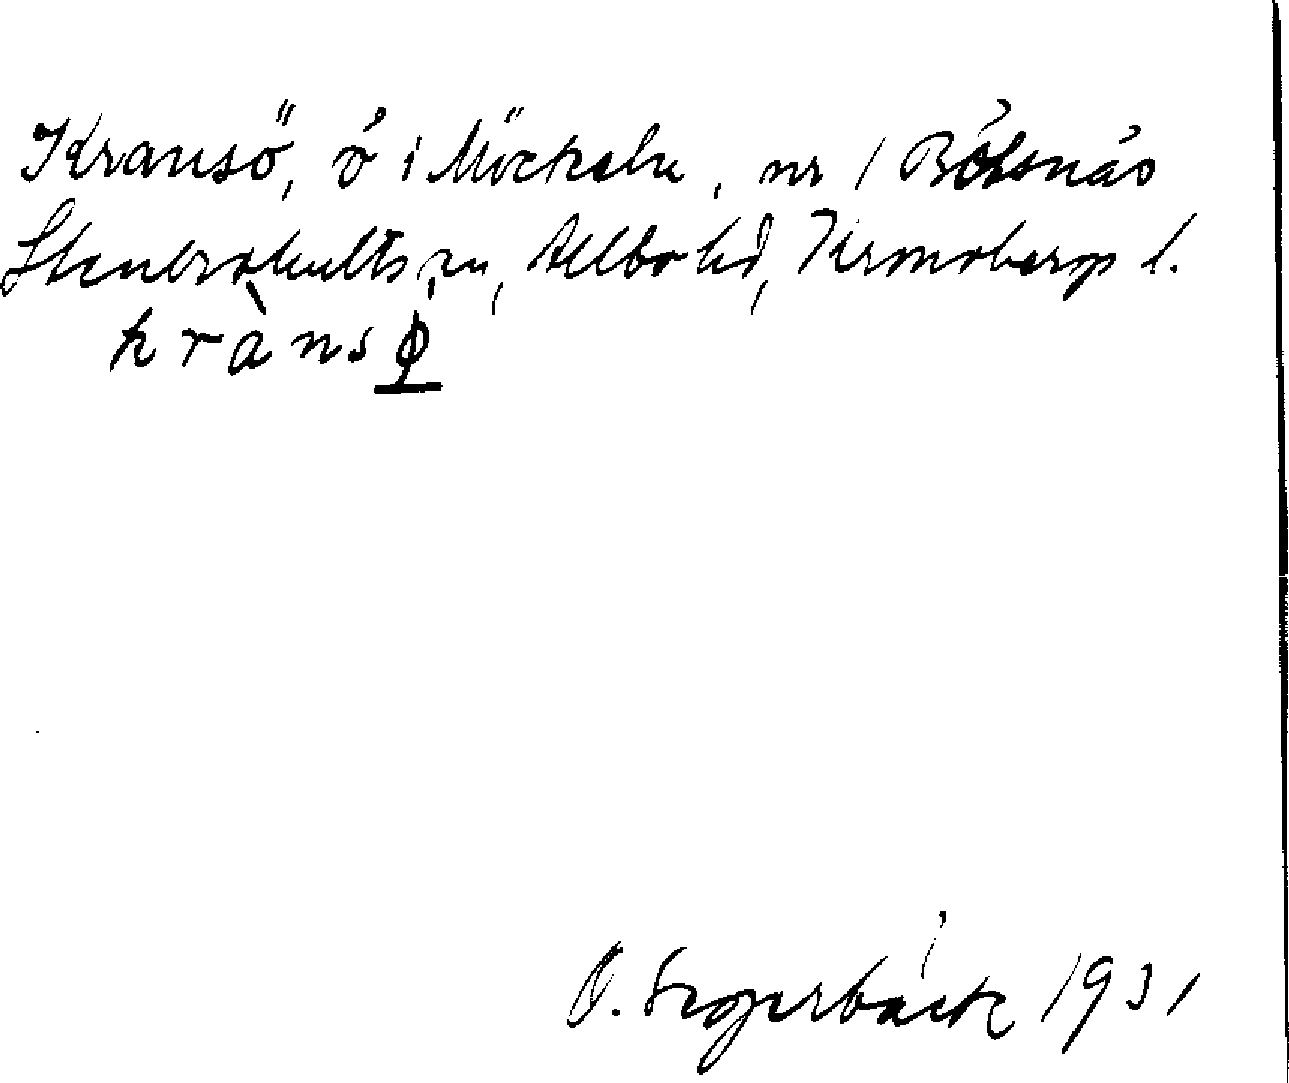 Kransö, ö i Möckeln, nr 1 Bökönäs
Stenbrohults sn, Allbo hd, Kronobergs l.
krànsø
O. Segerbäck 1931